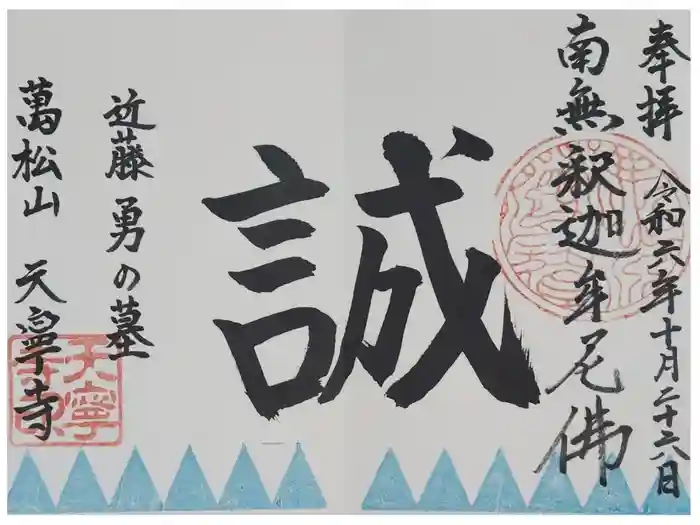 奉拝 令和六年十月二十六日
南無釈迦牟尼佛
誠
近藤勇の墓
萬松山 天寧寺
天寧寺印